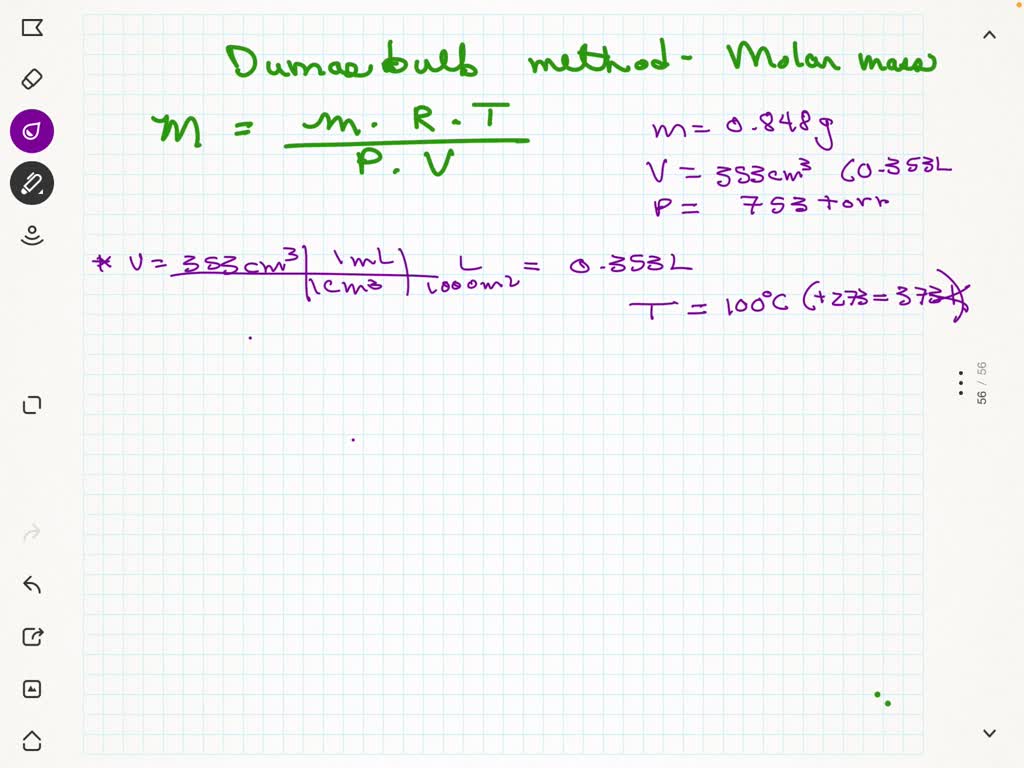 Dumas bulb method - Molar mass
M = m . R . T / P . V
m = 0.848g
V = 353cm³ (0.353L
P = 753 torr
* V = 353cm³ | 1mL | L = 0.353L
1cm³ | 1000mL
T = 100°C (+273 = 373K)
56 / 56